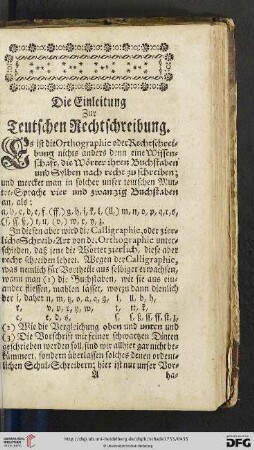 Die Einleitung
Zur
Teutschen Rechtschreibung.
Es ist die Orthographie oder Rechtschrei-
bung nichts anders denn eine Wissen-
schaft, die Wörter ihren Buchstaben
und Sylben nach recht zu schreiben;
und mercket man in solcher unser teutschen Mut-
ter-Sprache vier und zwanzig Buchstaben
an, als:
a, b, c, d, e, f, (ff,) g, h, i, k, l, (ll,) m, n, o, p, q, r, s,
(ſ, ſſ, ß,) t, u, (v,) w, x, y, z.
In diesen aber wird die Calligraphie, oder zier-
liche Schreib-Art von der Orthographie unter-
schieden, daß jene die Wörter zierlich, diese aber
recht schreiben lehret. Wegen der Calligraphie,
was nemlich für Vortheile aus selbiger erwachsen,
wann man (1) die Buchstaben, wie sie aus ein-
ander fliessen, mahlen lässet, worzu dann dienlich
der i, daher n, m, y, o, a, q, g, l, ll, b, h,
r, v, p, x, y, w, t, tt, k,
c, e, d, s, ſ, f, ß, ff, ſſ, ſt, z,
(2) Wie die Vergleichung oben und unten und
(3) Die Vorschrift mit feiner schwartzer Dinten
geschrieben werden soll, sind wir allhier gar nicht be-
kümmert, sondern überlassen solches denen ordent-
lichen Schul-Schreibern; hier ist nur unser Vor-
A ha-
http://digi.ub.uni-heidelberg.de/diglit/
© Universitätsbibliothek Heidelberg
gefördert durch die
DFG